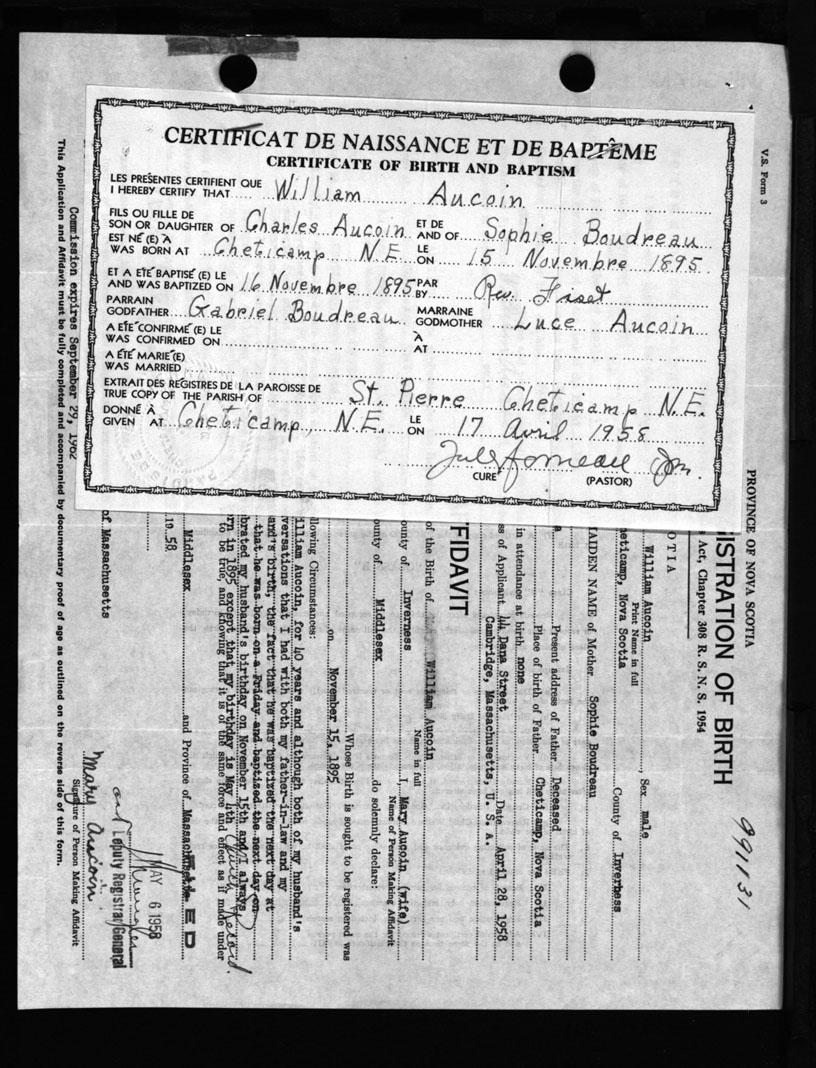 CERTIFICAT DE NAISSANCE ET DE BAPTÊME
CERTIFICATE OF BIRTH AND BAPTISM
LES PRÉSENTES CERTIFIENT QUE
I HEREBY CERTIFY THAT William Aucoin
FILS OU FILLE DE
SON OR DAUGHTER OF Charles Aucoin ET DE AND OF Sophie Boudreau
EST NÉ (E) À
WAS BORN AT Cheticamp N.E. LE ON 15 Novembre 1895
ET A ÉTÉ BAPTISÉ (E) LE
AND WAS BAPTIZED ON 16 Novembre 1895 PAR BY Rev. Fiset
PARRAIN
GODFATHER Gabriel Boudreau MARRAINE GODMOTHER Luce Aucoin
A ÉTÉ CONFIRMÉ (E) LE
WAS CONFIRMED ON À AT
A ÉTÉ MARIÉ (E)
WAS MARRIED
EXTRAIT DES REGISTRES DE LA PAROISSE DE
TRUE COPY OF THE PARISH OF St. Pierre Cheticamp N.E.
DONNÉ À
GIVEN AT Cheticamp, N.E. LE ON 17 Avril 1958
CURÉ (PASTOR)
V.S. Form 3
PROVINCE OF NOVA SCOTIA
991131
ISTRATION OF BIRTH
Act, Chapter 308 R. S. N. S. 1954
OTIA
William Aucoin, Sex male
Print Name in full
heticamp, Nova Scotia County of Inverness
MAIDEN NAME of Mother Sophie Boudreau
Present address of Father Deceased
Place of birth of Father Cheticamp, Nova Scotia
in attendance at birth none
ss of Applicant 44 Dana Street Date April 28, 1958
Cambridge, Massachusetts, U. S. A.
FIDAVIT
of the Birth of William Aucoin
Name in full
ounty of Inverness I, Mary Aucoin (wife)
Name of Person Making Affidavit
ounty of Middlesex do solemnly declare:
Whose Birth is sought to be registered was
on November 15, 1895
llowing Circumstances:
illiam Aucoin, for 40 years and although both of my husband's
versations that I had with both my father-in-law and my
and's birth, the fact that he was baptized the next day at
that he was born on a Friday and baptized the next day on
brated my husband's birthday on November 15th and always
rn in 1895 except that my birthday is May 4th Church Record.
to be true, and knowing that it is of the same force and effect as if made under
Middlesex and Province of Massachusetts
19 58
MAY 6 1958
Deputy Registrar General
of Massachusetts
Mary Aucoin
Signature of Person Making Affidavit
Commission expires September 29, 1962
This Application and Affidavit must be fully completed and accompanied by documentary proof of age as outlined on the reverse side of this form.